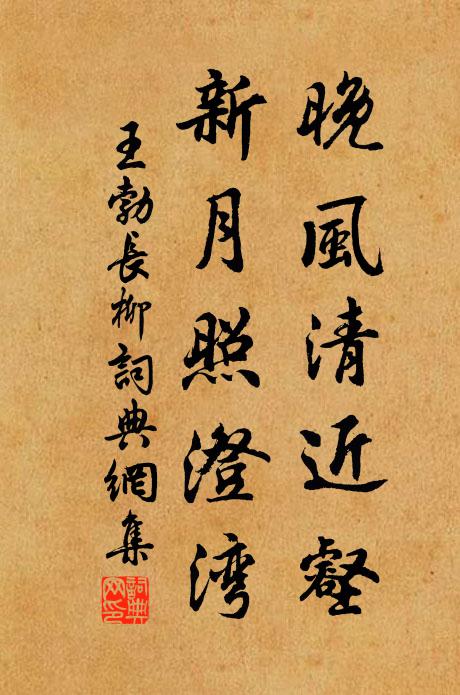 晚風清近壑
新月照澄灣
王勃長柳詞典網集
詞典網印